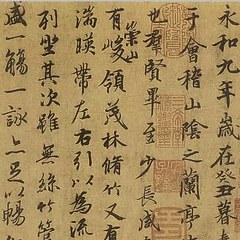 永和九年歲在癸丑暮
于會稽山陰之蘭亭
也羣賢畢至少長咸
有崇山峻領茂林脩竹又有
湍暎帶左右引以爲流
列坐其次雖無絲竹管
盛一觴一詠亦足以暢